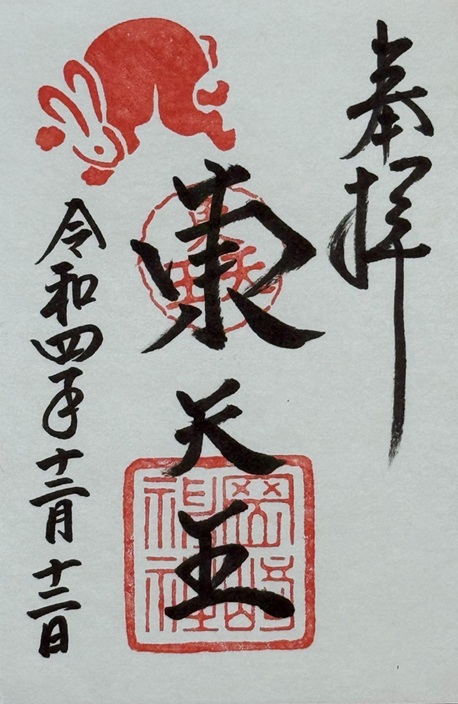 奉拝
東天王
岡崎
神社
令和四年十二月十二日